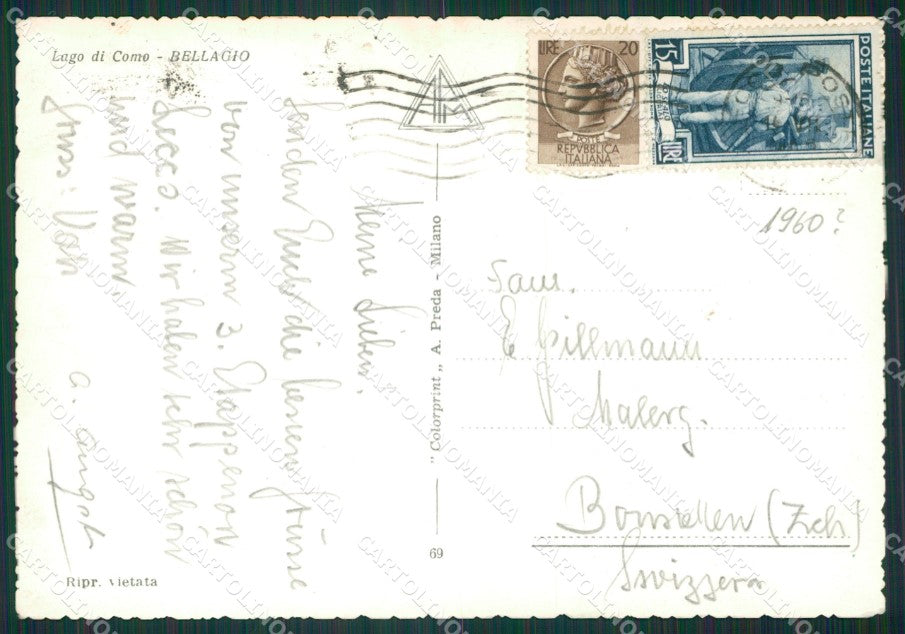 Lago di Como - BELLAGIO
Meine Lieben.
senden Euch die besten Grüsse
von unserm 3. Etappenort
Lecco. Wir haben sehr schön
und warm
Gruss:
Ripr. vietata
"Colorprint" A. Preda - Milano
69
LIRE 20
POSTE
REPVBBLICA
ITALIANA
15
LIRE
POSTE ITALIANE
1960?
Fam.
E Gillmann
Malerg.
Bonstetten (Zch)
Svizzera
CARTOLINOMANIA